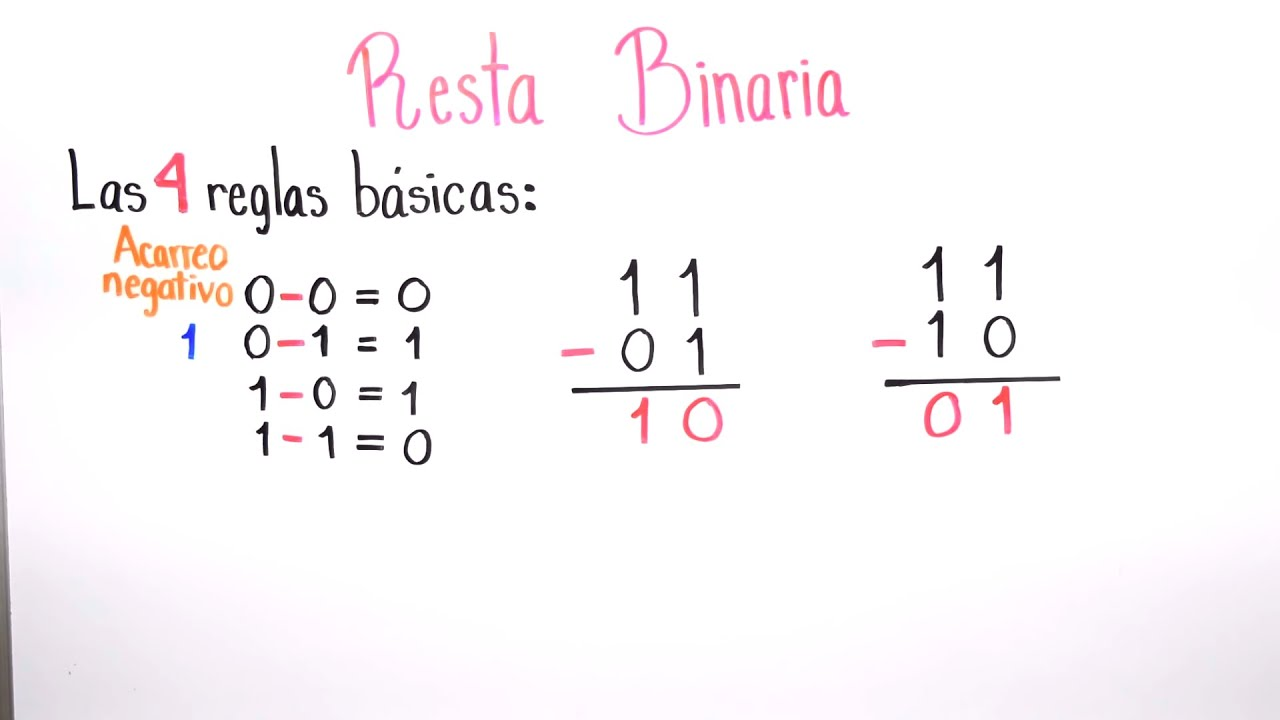 Resta Binaria
Las 4 reglas básicas:
Acarreo
negativo
0-0=0
1 0-1=1
1-0=1
1-1=0
11
-01
10
11
-10
01